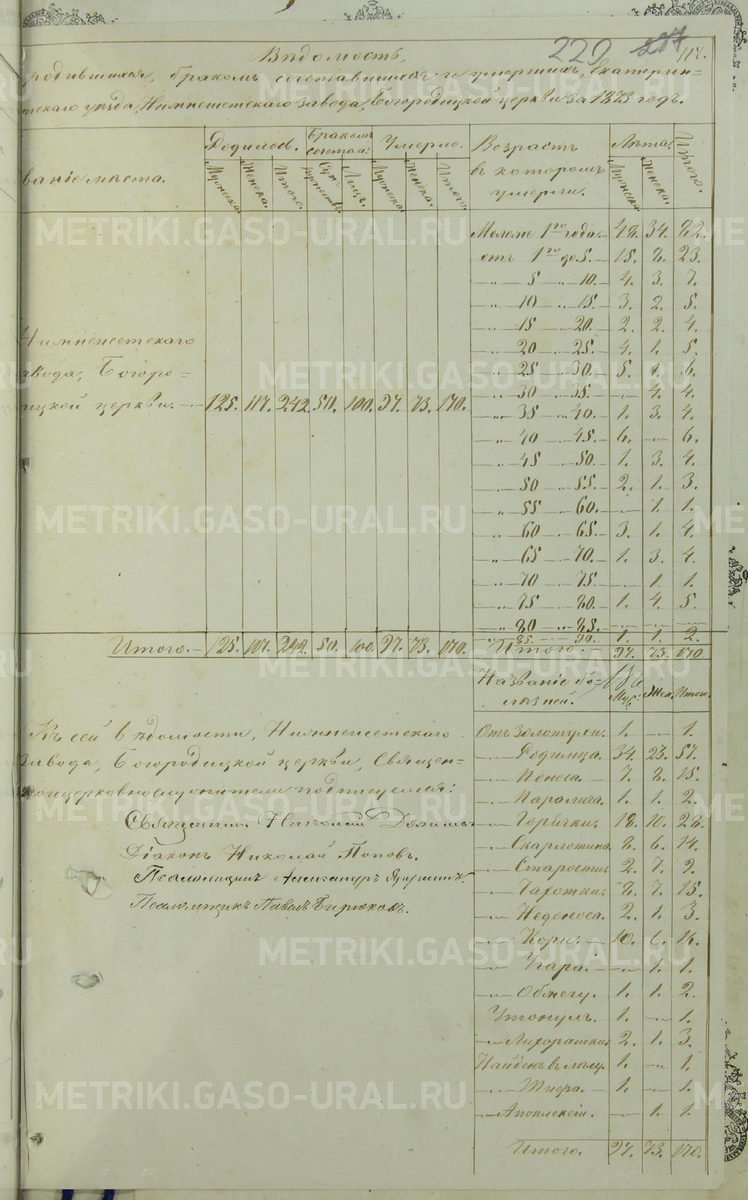 229 117.
Вѣдомость,
родившихся, бракомъ сочетавшихся и умершихъ, Екатерин-
скаго уѣзда, Нижнеисетскаго завода, Богородицкой церкви за 1873 годъ.
ваніе мѣста.
Родилось. Бракомъ сочетал: Умерло. Возрастъ въ которомъ умерли. Лѣта. Итого.
Мужеска. Женска. Итого. Суп-ружествъ. Лицъ. Мужеска. Женска. Итого. Мужеска. Женска.
Моложе 1го года. 48. 34. 82.
отъ 1го до 5. 15. 8. 23.
" 5 " 10. 4. 3. 7.
" 10 " 15. 3. 2. 5.
" 15 " 20. 2. 2. 4.
" 20 " 25. 4. 1. 5.
" 25 " 30. 5. 1. 6.
" 30 " 35. — 4. 4.
" 35 " 40. 1. 3. 4.
" 40 " 45. 6. — 6.
" 45 " 50. 1. 3. 4.
" 50 " 55. 2. 1. 3.
" 55 " 60. — 1. 1.
" 60 " 65. 3. 1. 4.
" 65 " 70. 1. 3. 4.
" 70 " 75. — 1. 1.
" 75 " 80. 1. 4. 5.
" 80 " 85. — — —
" 85. " 90. 1. 1. 2.
Итого. 97. 73. 170
Нижнеисетскаго
завода, Богоро-
ицкой церкви. — 125. 117. 242 50. 100. 97. 73. 170.
Итого. — 125. 117. 242. 50. 100. 97. 73. 170.
Названіе бо-
лѣзней. Муж: Жен. Итог.
Отъ золотухи. 1. — 1.
" Родимца. 34. 23. 57.
" Поноса. 7. 8. 15.
" Паралича. 1. 1. 2.
" Горячки. 18. 10. 28.
" Скарлотина. 8. 6. 14.
" Старости. 2. 7. 9.
" Чахотки. 8. 7. 15.
" Недоноса. 2. 1. 3.
" Кори. 10. 6. 16.
" Угара. — 1. 1.
" Обжегу. 1. 1. 2.
Утонулъ. 1. — 1.
" Лихоратки 2. 1. 3.
Найденъ въ лѣсу. 1. — 1.
" Тифа. 1. — 1.
" Апоплексіи. — 1. 1.
Итого. 97. 73. 170.
Къ сей вѣдомости, Нижнеисетскаго
завода, Богородицкой церкви, Священ-
ноцерковнослужители подписуемся:
Священникъ Николай
Діаконъ Николай Поповъ.
Псаломщикъ Александръ
Псаломщикъ Павелъ Бирюковъ.
METRIKI.GASO-URAL.RU